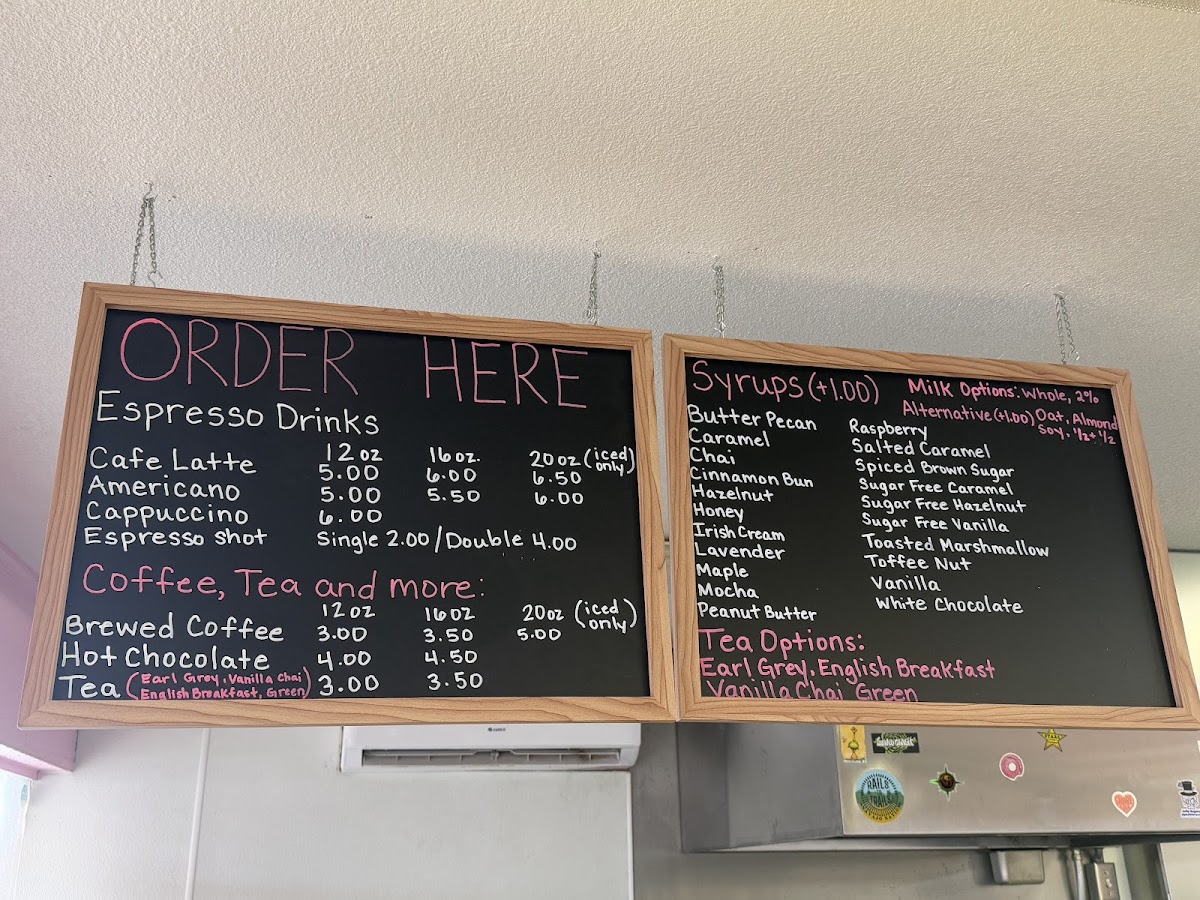 ORDER HERE
Espresso Drinks
12 oz 16 oz. 20 oz (iced only)
Cafe Latte 5.00 6.00 6.50
Americano 5.00 5.50 6.00
Cappuccino 6.00
Espresso shot Single 2.00/Double 4.00
Coffee, Tea and more:
12 oz 16 oz 20 oz (iced only)
Brewed Coffee 3.00 3.50 5.00
Hot Chocolate 4.00 4.50
Tea (Earl Grey, Vanilla Chai English Breakfast, Green) 3.00 3.50
Syrups (+1.00)
Butter Pecan
Caramel
Chai
Cinnamon Bun
Hazelnut
Honey
Irish Cream
Lavender
Maple
Mocha
Peanut Butter
Milk Options: Whole, 2%
Alternative (+1.00) Oat, Almond
Soy, 1/2 + 1/2
Raspberry
Salted Caramel
Spiced Brown Sugar
Sugar Free Caramel
Sugar Free Hazelnut
Sugar Free Vanilla
Toasted Marshmallow
Toffee Nut
Vanilla
White Chocolate
Tea Options:
Earl Grey, English Breakfast
Vanilla Chai, Green
RAILS
TRAILS